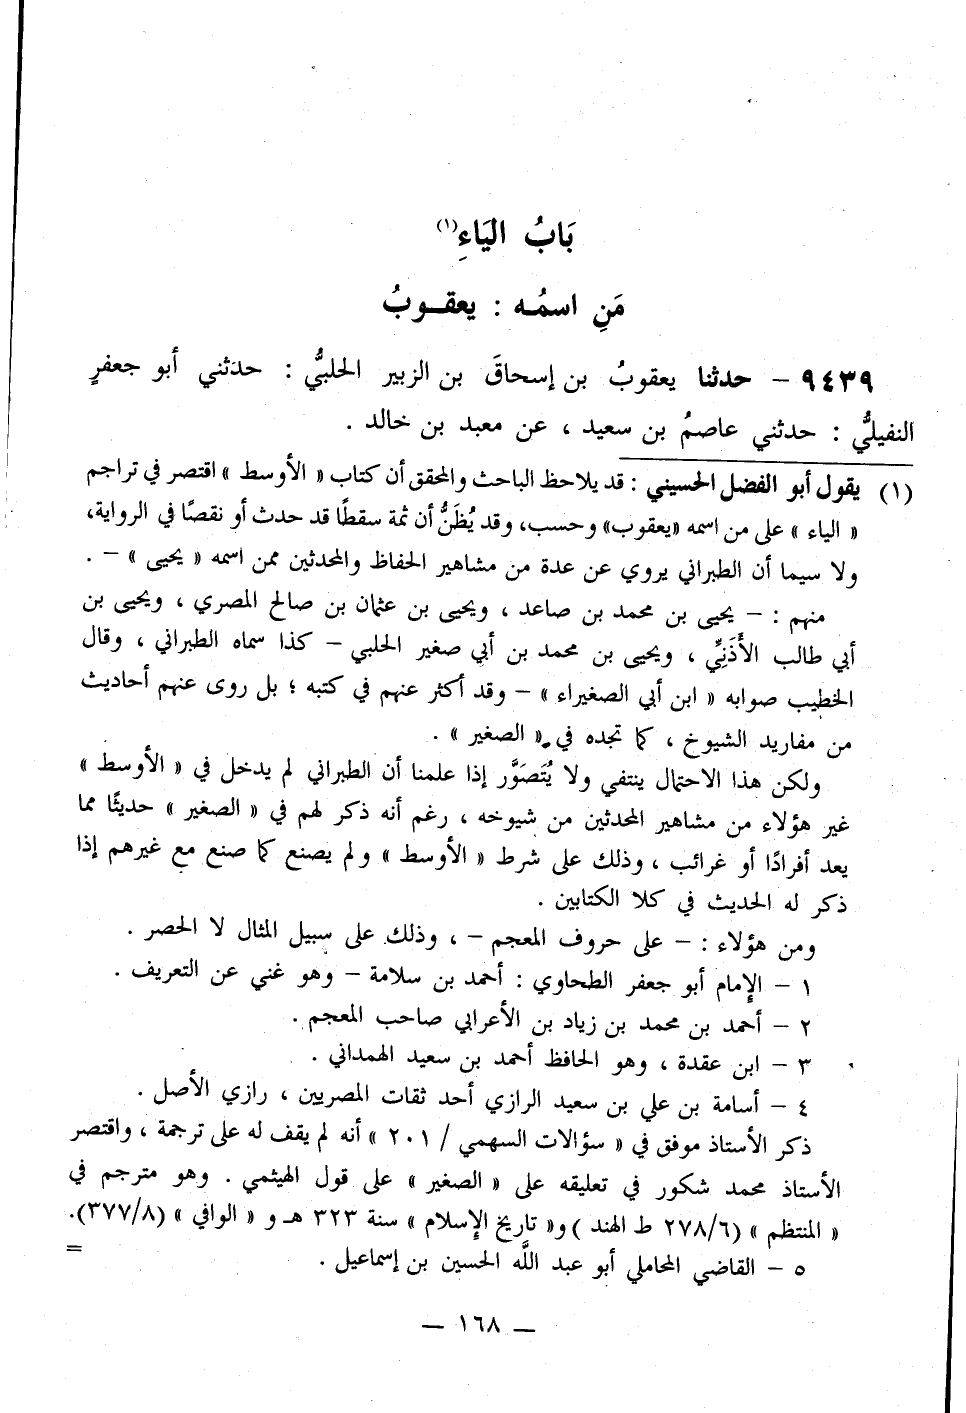 بَابُ اليَاءِ(١)
مَنِ اسمُـه : يعقـوبُ
٩٤٣٩ – حدثنا يعقوبُ بن إسحاقَ بن الزبير الحلبيُّ : حدثني أبو جعفرٍ
النفيليُّ : حدثني عاصمُ بن سعيد ، عن معبد بن خالد .
(١) يقول أبو الفضل الحسيني : قد يلاحظ الباحث والمحقق أن كتاب « الأوسط » اقتصر في تراجم
« الياء » على من اسمه «يعقوب» وحسب، وقد يُظَنُّ أن ثمة سقطًا قد حدث أو نقصًا في الرواية،
ولا سيما أن الطبراني يروي عن عدة من مشاهير الحفاظ والمحدثين ممن اسمه « يحيى » – .
منهم : – يحيى بن محمد بن صاعد ، ويحيى بن عثمان بن صالح المصري ، ويحيى بن
أبي طالب الأَذَنيِّ ، ويحيى بن محمد بن أبي صغير الحلبي – كذا سماه الطبراني ، وقال
الخطيب صوابه « ابن أبي الصغيراء » – وقد أكثر عنهم في كتبه ؛ بل روى عنهم أحاديث
من مفاريد الشيوخ ، كما تجده في « الصغير » .
ولكن هذا الاحتمال ينتفي ولا يُتَصَوَّر إذا علمنا أن الطبراني لم يدخل في « الأوسط »
غير هؤلاء من مشاهير المحدثين من شيوخه ، رغم أنه ذكر لهم في « الصغير » حديثًا مما
يعد أفرادًا أو غرائب ، وذلك على شرط « الأوسط » ولم يصنع كما صنع مع غيرهم إذا
ذكر له الحديث في كلا الكتابين .
ومن هؤلاء : – على حروف المعجم – ، وذلك على سبيل المثال لا الحصر .
١ – الإمام أبو جعفر الطحاوي : أحمد بن سلامة – وهو غني عن التعريف .
٢ – أحمد بن محمد بن زياد بن الأعرابي صاحب المعجم .
٣ – ابن عقدة ، وهو الحافظ أحمد بن سعيد الهمداني .
٤ – أسامة بن علي بن سعيد الرازي أحد ثقات المصريين ، رازي الأصل .
ذكر الأستاذ موفق في « سؤالات السهمي / ٢٠١ » أنه لم يقف له على ترجمة ، واقتصر
الأستاذ محمد شكور في تعليقه على « الصغير » على قول الهيثمي . وهو مترجم في
« المنتظم » (٢٧٨/٦ ط الهند ) و« تاريخ الإسلام » سنة ٣٢٣ هـ و « الوافي » (٣٧٧/٨).
٥ – القاضي المحاملي أبو عبد اللَّه الحسين بن إسماعيل .
=
— ١٦٨ —